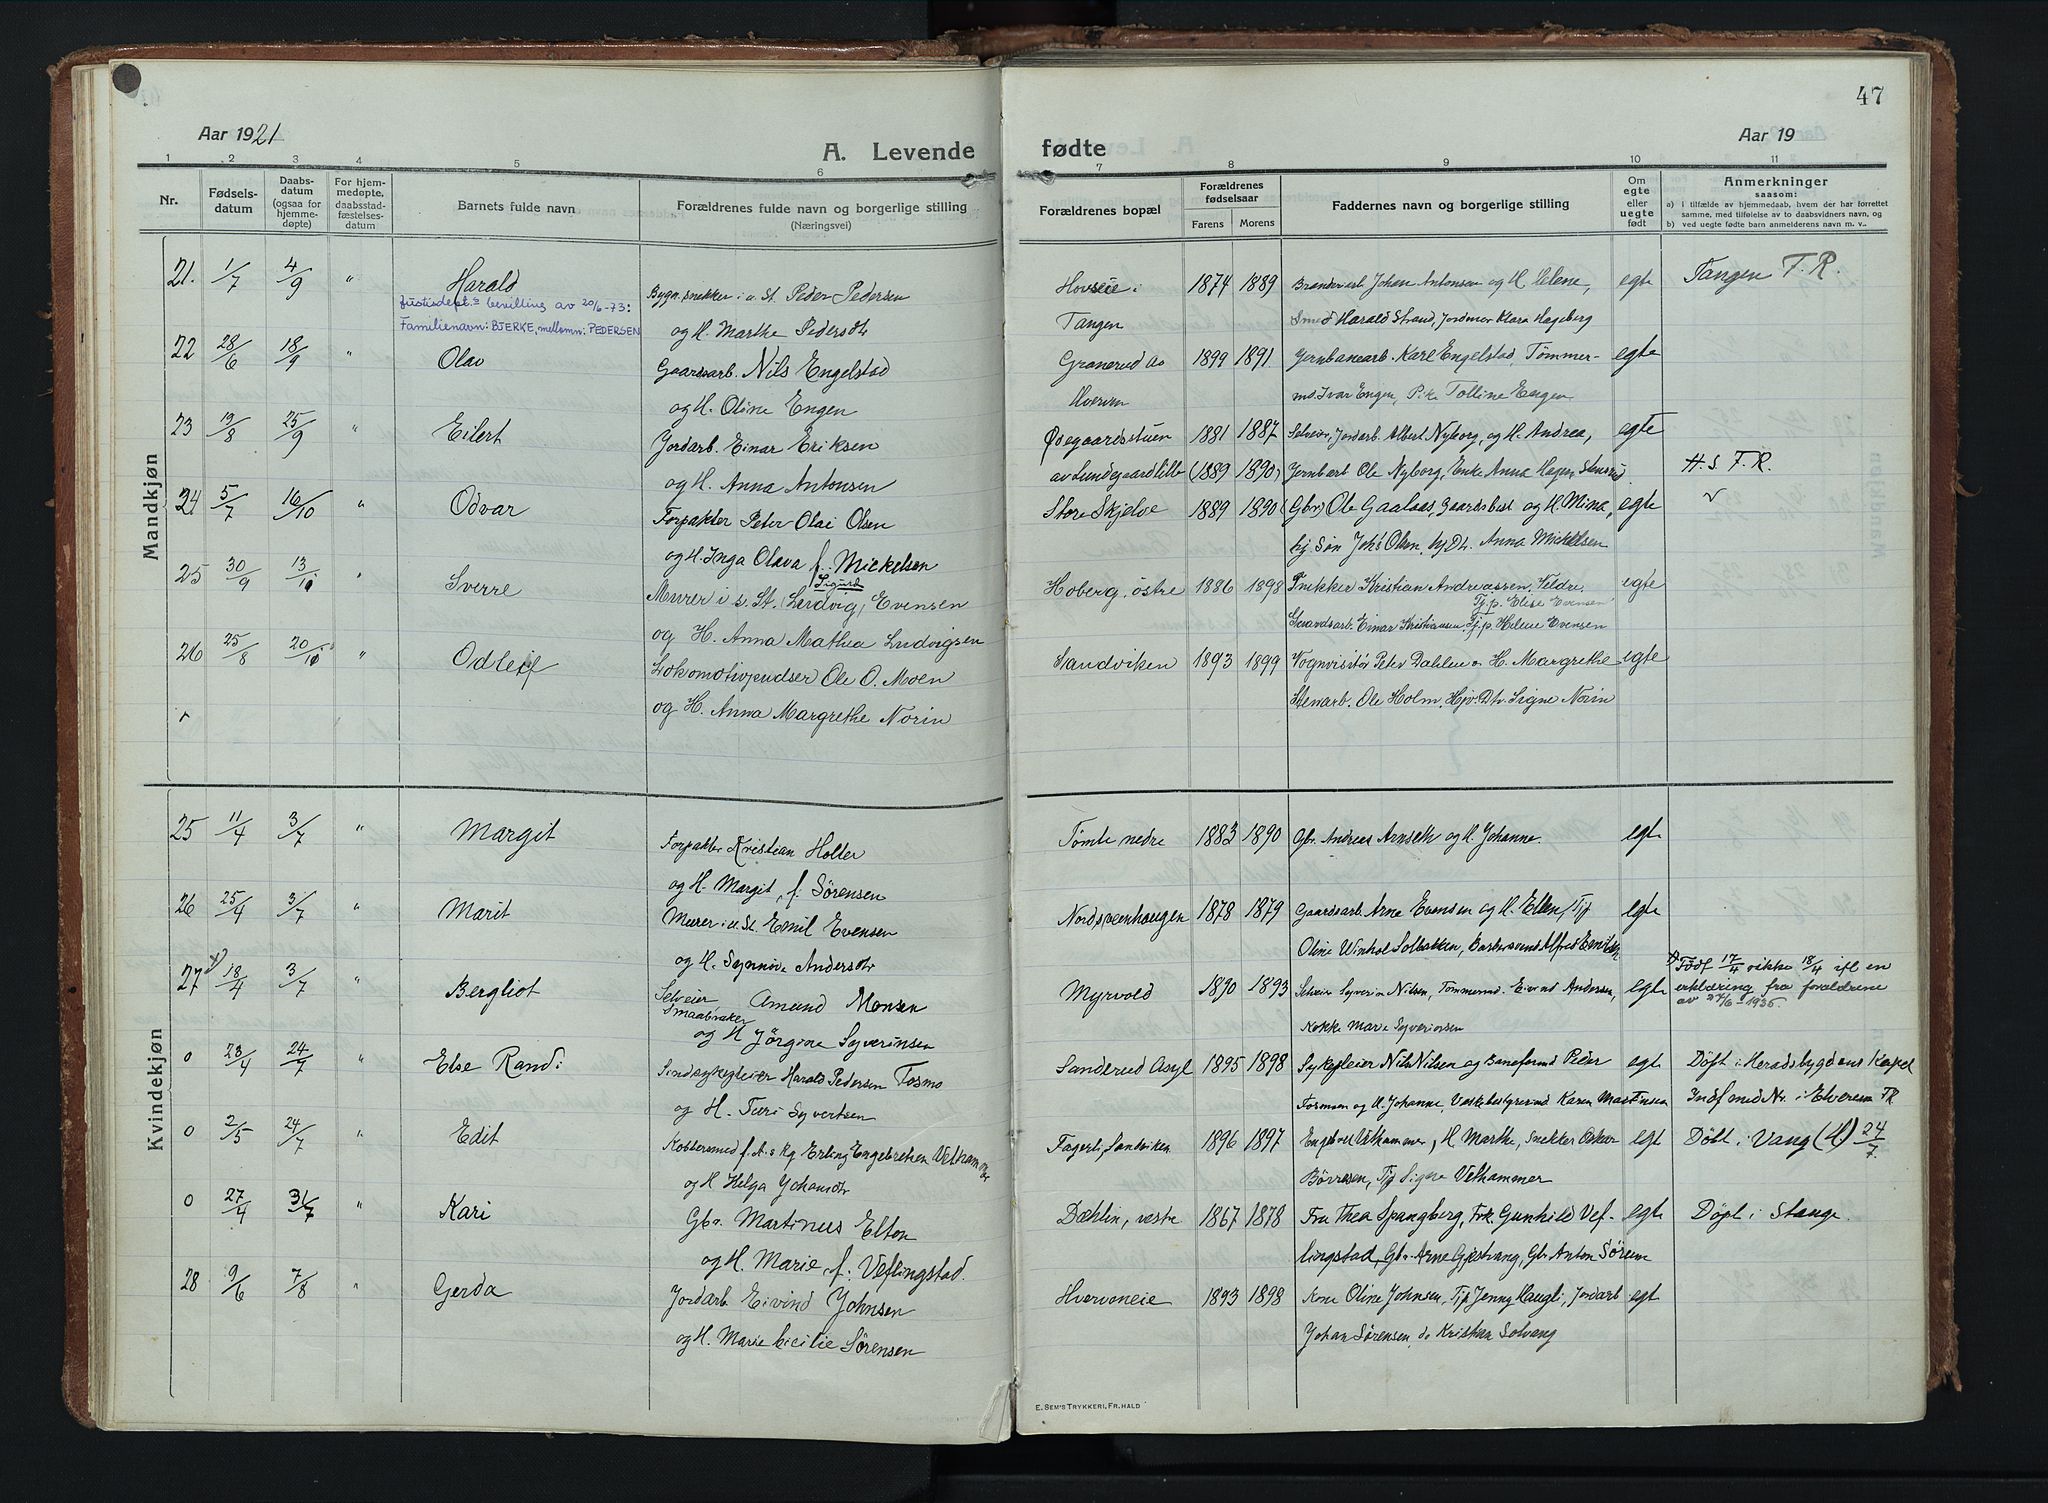 47
Aar 1921
A. Levende
fødte
Aar 19
1 2 3 4 5 6 7 8 9 10 11
Nr.
Fødsels-
datum
Daabs-
datum
(ogsaa for
hjemme-
døpte)
For hjem-
medøpte,
daabsstad-
fæstelses-
datum
Barnets fulde navn
Forældrenes fulde navn og borgerlige stilling
(Næringsvei)
Forældrenes bopæl
Forældrenes
fødselsaar
Farens Morens
Faddernes navn og borgerlige stilling
Om
egte
eller
uegte
født
Anmerkninger
saasom:
a) i tilfælde av hjemmedaab, hvem der har forrettet
samme, med tilføielse av to daabsvidners navn, og
b) ved uegte fødte barn anmelderens navn m. v..
Mandkjøn
21. 1/7 4/9 " Harald Bygn. snekker i u. St. Peder Pedersen Hovseie i 1874 1889 Johan Antonsen og H. Helene, egte Tangen T. R.
Justisdept.s bevilling av 20/6-73:
Familienavn: BJERKE, mellomn: PEDERSEN
og H. Marthe Pedersdtr Tangen Smed Harald Strand, Jordmor Klara Hageberg
22 28/6 18/9 " Olav Gaardsarb. Nils Engelstad Granerud av 1899 1891 Jernbanearb. Karl Engelstad, Tømmer- egte
og H. Oline Engen Hverven md. Ivar Engen, Pike Tolline Engen
23 19/8 25/9 " Eilert Jordarb. Einar Eriksen Øvegaardsstuen 1881 1887 Selveier, Jordarb. Albert Nyborg, og H. Andrea, egte
og H. Anna Antonsen av Lundgaardlille (1889 1890) Jernbarb Ole Nyborg, Enke Anna Hagen, H. S T. R.
24 5/7 16/10 " Odvar Forpakter Peter Olai Olsen Store Skjelve 1889 1890 (Gbr) Ole Gaalaas, Gaardsbest og H. Mina, egte
og H. Inga Olava f. Mickelsen hj Søn Johs Olsen, hj Dt. Anna Mickelsen
25 30/9 13/10 " Sverre Murer i s. St. (Ludvig) Sigurd Evensen Hoberg, østre 1886 1898 Snekker Kristian Andreassen, Veldre, egte
Tj.p. Elise Evensen
og H. Anna Mathea Ludvigsen Strandsarb. Einar Kristiansen Tj.p. Helene Evensen
26 25/8 20/10 " Odleif Lokomotivpudser Ole O. Moen Sandviken 1893 1899 Vognvisitør Peter Dahlen o H. Margrethe egte
og H. Anna Margrethe Norin Stenarb. Ole Holm, Hjv. Dtr. Signe Norin
Kvindekjøn
25 11/4 3/7 " Margit Forpakter Kristian Holter Tomte nedre 1883 1890 Gbr. Andreas Arnseth og H. Johanne. egte
og H. Margit, f. Sørensen
26 25/4 3/7 " Marit Murer i u. St. Emil Evensen Nordsveenhaugen 1878 1879 Gaardsarb Arne Evensen og H. Ellen, Tjp egte
og H. Synnøve Andersdtr Oline Winhol Solbakken, Barbersvend Alfred Emilsen
27 x) 18/4 3/7 " Bergliot Selveier Smaabruker Amund Monsen Myrvold 1890 1893 Selveier Syverin Nilsen, Tømmermd. Eivind Andersen, egte
x) Født 17/4 o ikke 18/4 ifl en
erklæring fra foreldrene
av 27/6-1935.
og H Jörgine Syverinsen Kokke Marie Syverinsen
0 23/4 24/7 " Else Randi Sindsykepleier Harald Pedersen Fosmo Sanderud Asyl 1895 1898 Sykepleier Nils Nilsen og Baneformd Peder egte Døpt i Heradsbygdens Kapel
og H. Turi Syvertsen Fosmoen og H. Johanne, Vaskebestyrerinde Karen Martinsen Indf med Nr. i Elverum TR
0 2/5 24/7 " Edit Kobbersmed f. A.s Kg Erling Engebretsen Vethammer Fagerli, Sandviken 1896 1897 Engebret Vethammer, H. Marthe, Snekker Oskar egt Døbt i Vang (H) 24/7.
og H Helga Johansdtr Børresen, Tjp Signe Vethammer
0 27/4 31/7 " Kari Gbr. Martinus Elton Dæhlin, vestre 1867 1878 Fru Thea Spangberg, Frk. Gunhild Vef- egte Døpt i Stange.
og H. Marie, f. Veflingstad. lingstad, Gbr. Arne Gjestvang, Gbr Anton Sørum
28 9/6 7/8 " Gerda Jordarb Eivind Johnsen Hvervoneie 1893 1898 Kone Oline Johnsen, Tjp Jenny Haugli, Jordarb egt
og H. Marie Cicilie Sørensen Johan Sørensen, do Kristian Solvang
E. SEM'S TRYKKERI, FR.HALD